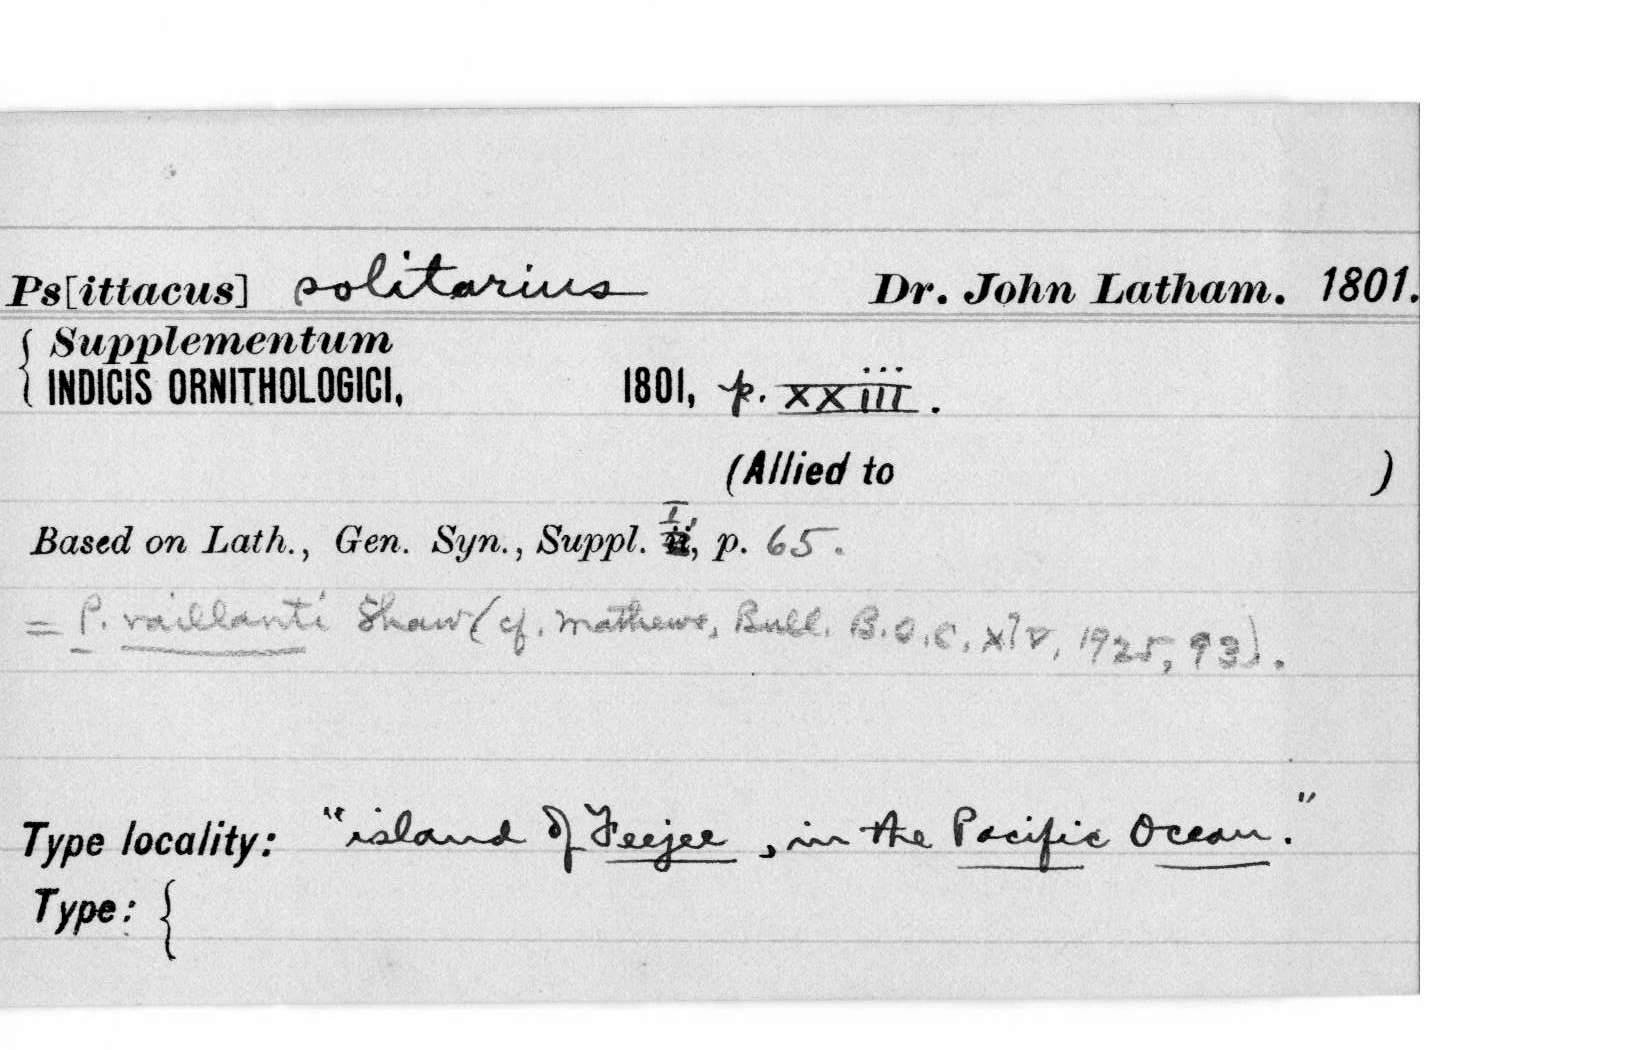 Ps[ittacus] solitarius Dr. John Latham. 1801.
{ Supplementum
INDICIS ORNITHOLOGICI, 1801, p. xxiii.
(Allied to )
Based on Lath., Gen. Syn., Suppl. I, p. 65.
= P. vaillanti Shaw (cf. Mathews, Bull. B.O.C. xlv, 1925, 93).
Type locality: "island of Feejee, in the Pacific Ocean."
Type: {